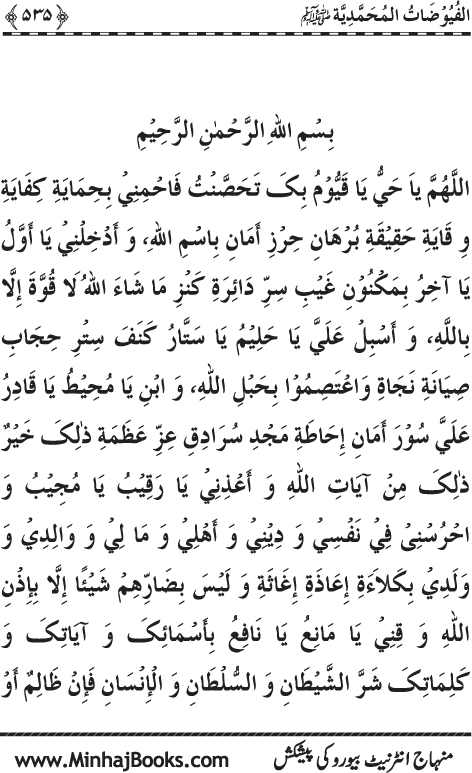 الفُيُوْضَاتُ المُحَمَّدِيَّة ﷺ ﴿۵۳۵﴾
بِسْمِ اللهِ الرَّحْمٰنِ الرَّحِيْمِ
اللَّهُمَّ يَا حَيُّ يَا قَيُّوْمُ بِکَ تَحَصَّنْتُ فَاحْمِنِيْ بِحِمَايَةِ كِفَايَةِ
وِقَايَةِ حَقِيْقَةِ بُرْهَانِ حِرْزِ أَمَانِ بِاسْمِ اللهِ، وَ أَدْخِلْنِيْ يَا أَوَّلُ
يَا آخِرُ بِمَكْنُوْنِ غَيْبِ سِرِّ دَائِرَةِ كَنْزِ مَا شَاءَ اللهُ لَا قُوَّةَ إِلَّا
بِاللَّهِ، وَ أَسْبِلْ عَلَيَّ يَا حَلِيْمُ يَا سَتَّارُ كَنَفَ سِتْرِ حِجَابِ
صِيَانَةِ نَجَاةِ وَاعْتَصِمُوْا بِحَبْلِ اللهِ، وَ ابْنِ يَا مُحِيْطُ يَا قَادِرُ
عَلَيَّ سُوْرَ أَمَانِ إِحَاطَةِ مَجْدِ سُرَادِقِ عِزِّ عَظَمَةِ ذٰلِکَ خَيْرٌ
ذٰلِکَ مِنْ آيَاتِ اللهِ وَ أَعْذِنِيْ يَا رَقِيْبُ يَا مُجِيْبُ وَ
احْرُسْنِيْ فِيْ نَفْسِيْ وَ دِيْنِيْ وَ أَهْلِيْ وَ مَا لِيْ وَ وَالِدِيْ وَ
وَلَدِيْ بِكَلَاءَةِ إِعَاذَةِ إِغَاثَةِ وَ لَيْسَ بِضَارِّهِمْ شَيْئًا إِلَّا بِإِذْنِ
اللهِ وَ قِنِيْ يَا مَانِعُ يَا نَافِعُ بِأَسْمَائِکَ وَ آيَاتِکَ وَ
كَلِمَاتِکَ شَرَّ الشَّيْطَانِ وَ السُّلْطَانِ وَ الْإِنْسَانِ فَإِنْ ظَالِمٌ أَوْ
منہاج انٹرنیٹ بیورو کی پیشکش www.MinhajBooks.com